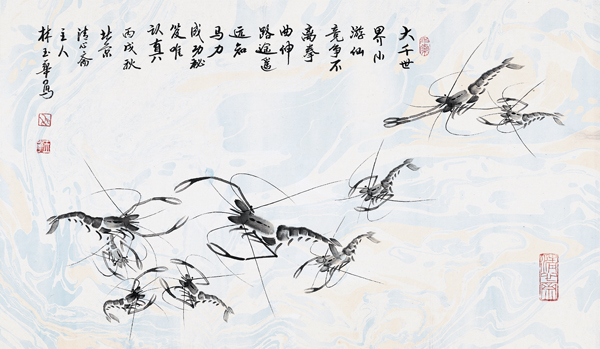 大千世
界小
游仙
竞争不
离拳
曲伸
路途遥
远知
马力
成功秘
笈唯
认真六
丙戌秋
北京
清心斋
主人
林玉华写